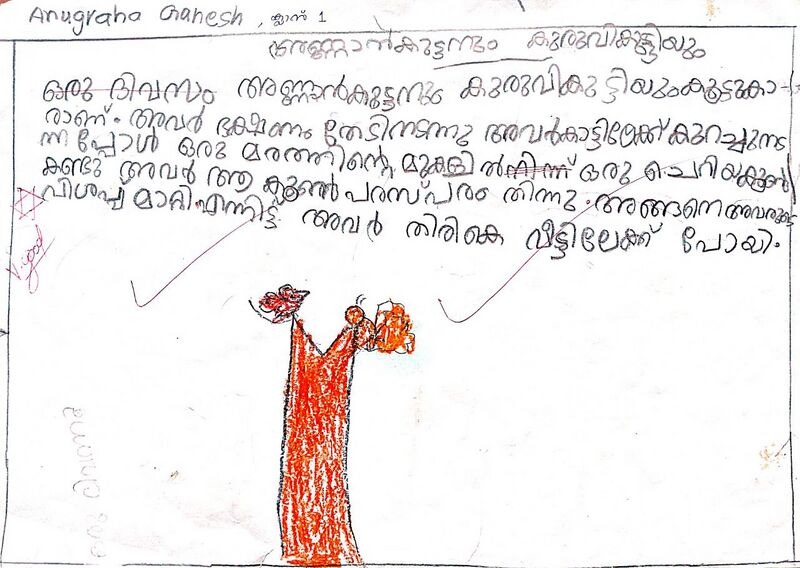 Anugraha Ganesh, ക്ലാസ് 1
അണ്ണാൻകുട്ടനും കുരുവികുട്ടിയും
ഒരു ദിവസം അണ്ണാൻകുട്ടനും കുരുവികുട്ടിയും കൂട്ടുകാ-
രാണ്. അവർ ഭക്ഷണം തേടിനടന്നു അവർകാട്ടിലേക്ക് കുറച്ചുനട
ന്നപ്പോൾ ഒരു മരത്തിന്റെ മുകളിൽനിന്ന് ഒരു ചെറിയകൂൺ
കണ്ടു അവർ ആ കൂൺ പരസ്പരം തിന്നു. അങ്ങനെ അവരുടെ
വിശപ്പ് മാറി. എന്നിട്ട് അവർ തിരികെ വീട്ടിലേക്ക് പോയി.
V. good
ഒരു ദിവസം